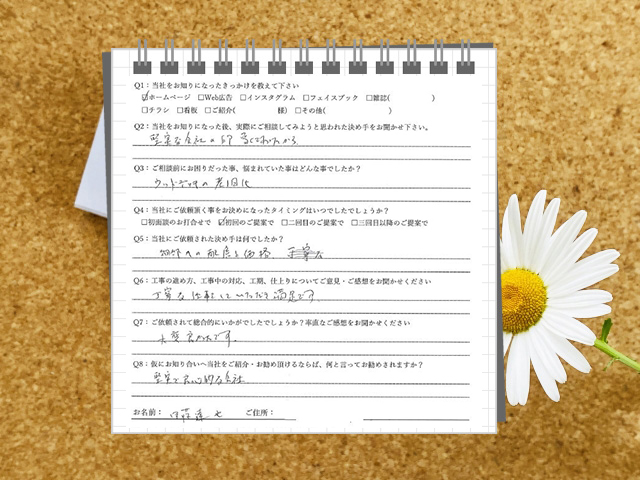 Q1：当社をお知りになったきっかけを教えて下さい
☑ホームページ □Web広告 □インスタグラム □フェイスブック □雑誌( )
□チラシ □看板 □ご紹介( 様) □その他( )
Q2：当社をお知りになった後、実際にご相談してみようと思われた決め手をお聞かせ下さい。
堅実な会社の印
Q3：ご相談前にお困りだった事、悩まれていた事はどんな事でしたか？
ウッドデッキの老朽化
Q4：当社にご依頼頂く事をお決めになったタイミングはいつでしたでしょうか？
□初面談のお打合せで ☑初回のご提案で □二回目のご提案で □三回目以降のご提案で
Q5：当社にご依頼された決め手は何でしたか？
への配慮と価格
Q6：工事の進め方、工事中の対応、工期、仕上りについてご意見・ご感想をお聞かせください
丁寧な仕事していただき満足です
Q7：ご依頼されて総合的にいかがでしたでしょうか？率直なご感想をお聞かせください
大変良かったです。
Q8：仮にお知り合いへ当社をご紹介・お勧め頂けるならば、何と言ってお勧めされますか？
堅実で良心的な会社
お名前： ご住所：